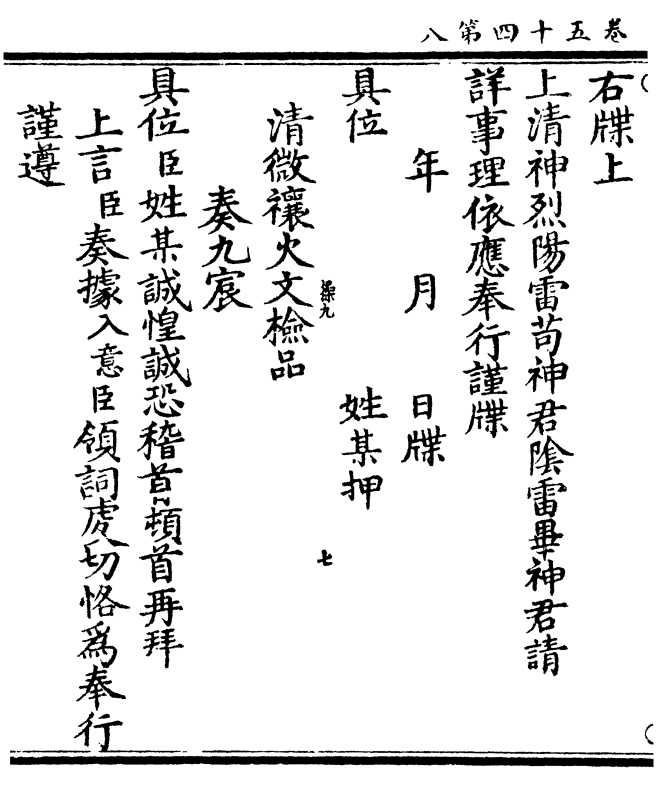 卷五十四第八
右牒上
上清神烈陽雷苟神君陰雷畢神君請
詳事理依應奉行謹牒
年　月　日牒
具位　姓某押
七
清微禳火文檢品
奏九宸
具位臣姓某誠惶誠恐稽首頓首再拜
上言臣奏據入意臣領詞虔切恪爲奉行
謹遵